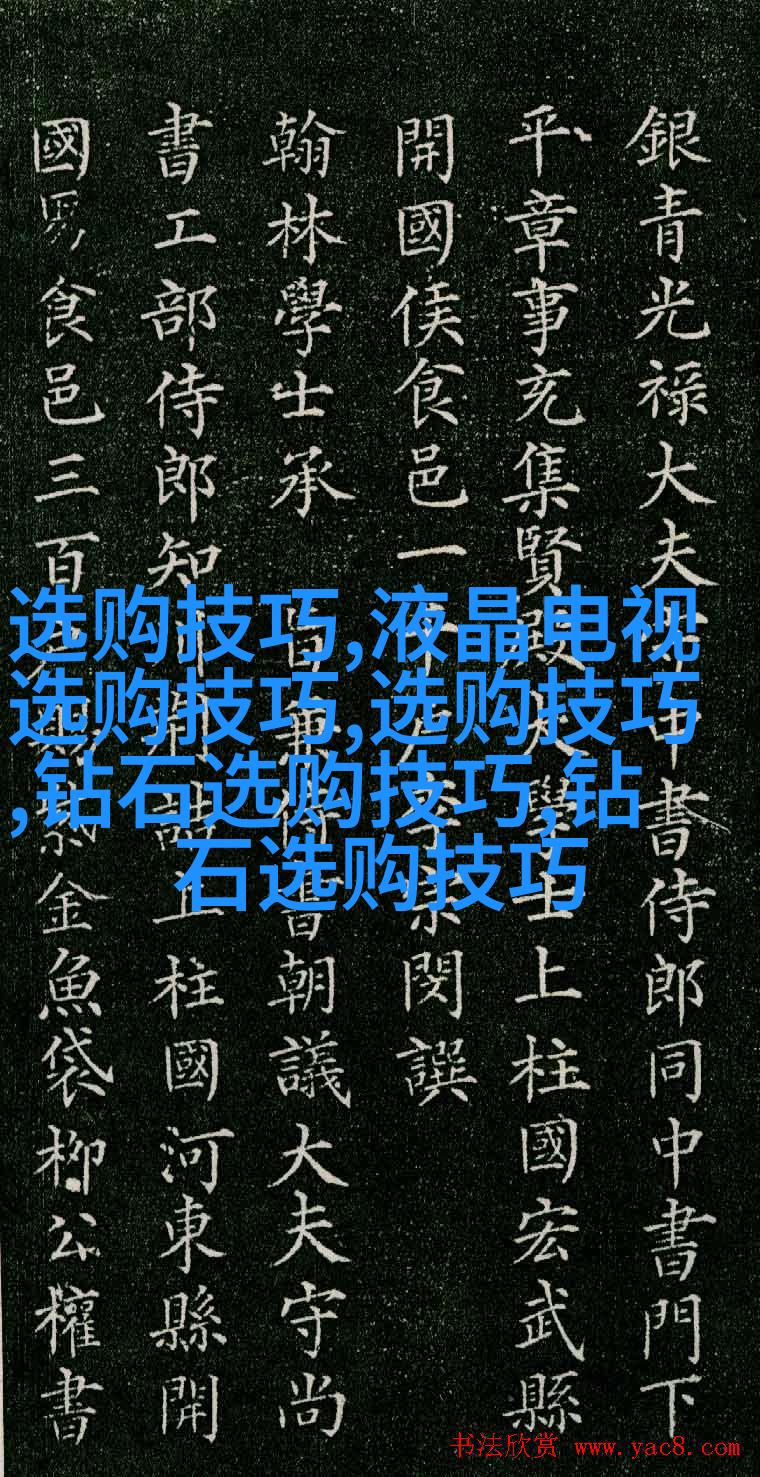 銀青光禄大夫守中書侍郎同中書門下
平章事充集賢殿大學士上柱國宏武縣
開國侯食邑一千户李宗閔撰
翰林學士承 旨兼侍書朝議大夫守尚
書工部侍郎知制誥上柱國河東縣開
國男食邑三百户賜紫金魚袋柳公權書
选购技巧,液晶电视
选购技巧,选购技巧
,钻石选购技巧,钻
石选购技巧
书法欣赏 www.yac8.com